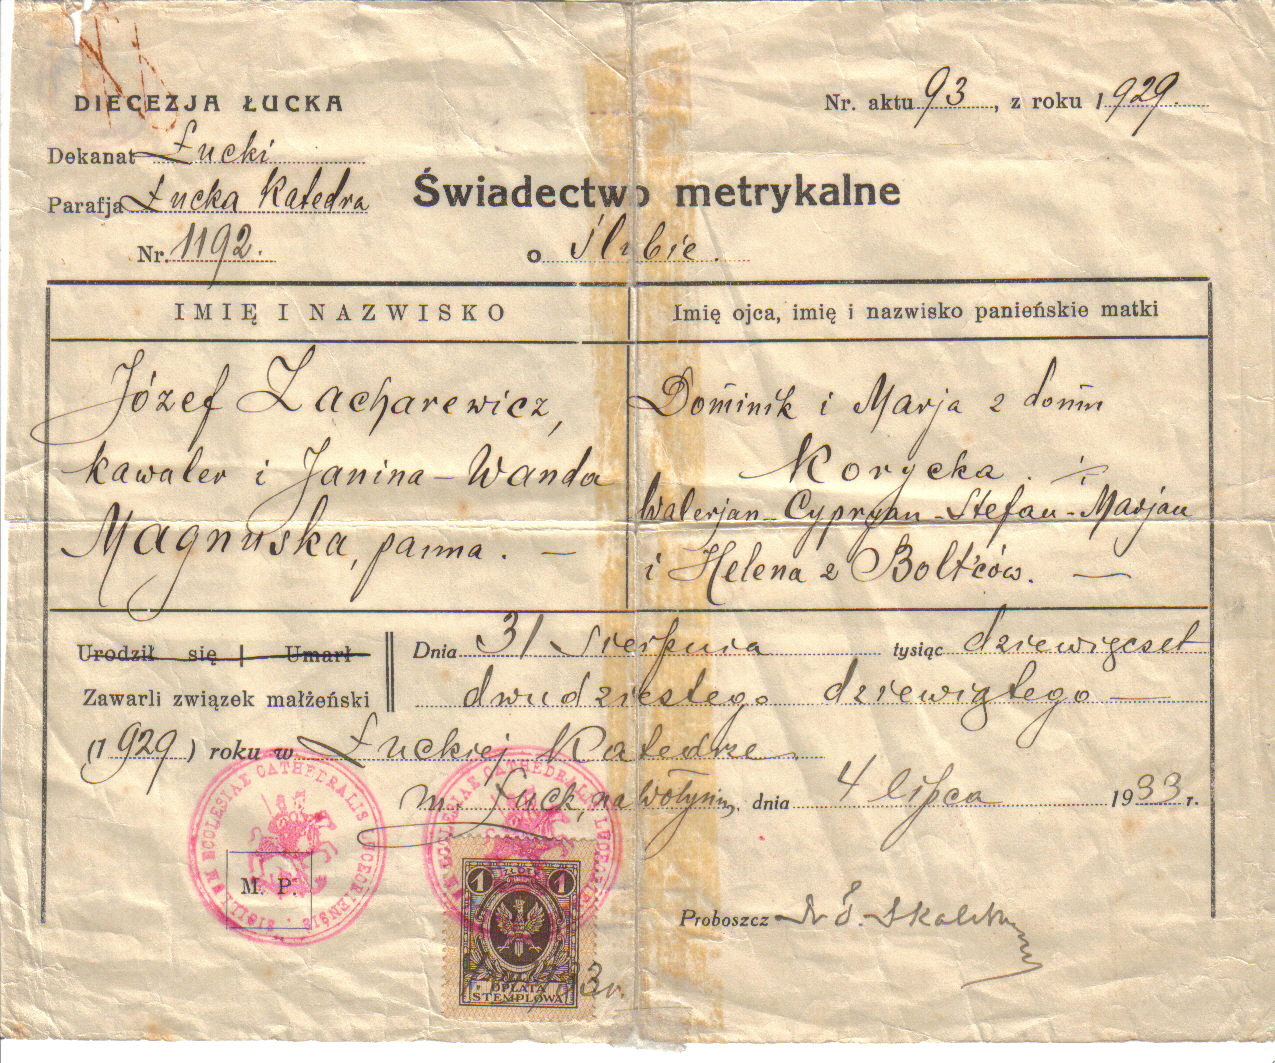 DIECEZJA ŁUCKA
Nr. aktu 93, z roku 1929.
Dekanat Łucki
Parafja Łucka Katedra
Świadectwo metrykalne
Nr. 1192.
o ślubie.
IMIĘ I NAZWISKO
Imię ojca, imię i nazwisko panieńskie matki
Józef Zacharewicz,
kawaler i Janina-Wanda
Magnuska, panna. —
Dominik i Marja z domu
Korycka. i
Walerjan-Cypryan-Stefan-Marjan
i Helena z Bolt'ców. —
Urodził się | Umarł
Zawarli związek małżeński
Dnia 31 Sierpnia tysiąc dziewięcset
dwudziestego dziewiątego —
(1929) roku w Łuckiej Katedrze.
m. Łuck, na Wołyniu, dnia 4 lipca 1933 r.
SIGILLUM ECCLESIAE CATHEDRALIS LUCEORIENSIS
M. P.
1 ZŁOTY 1
OPŁATA
STEMPLOWA
33 r.
Proboszcz